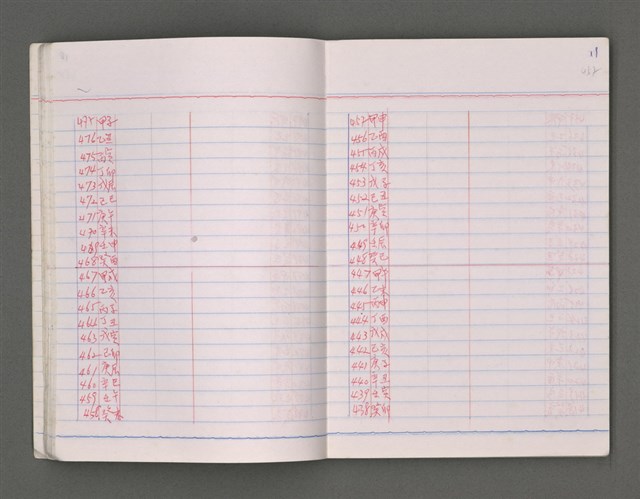 477 甲子
476 乙丑
475 丙寅
474 丁卯
473 戊辰
472 己巳
471 庚午
470 辛未
469 壬申
468 癸酉
467 甲戌
466 乙亥
465 丙子
464 丁丑
463 戊寅
462 己卯
461 庚辰
460 辛巳
459 壬午
458 癸未
11
457 甲申
456 乙酉
455 丙戌
454 丁亥
453 戊子
452 己丑
451 庚寅
450 辛卯
449 壬辰
448 癸巳
447 甲午
446 乙未
445 丙申
444 丁酉
443 戊戌
442 己亥
441 庚子
440 辛丑
439 壬寅
438 癸卯